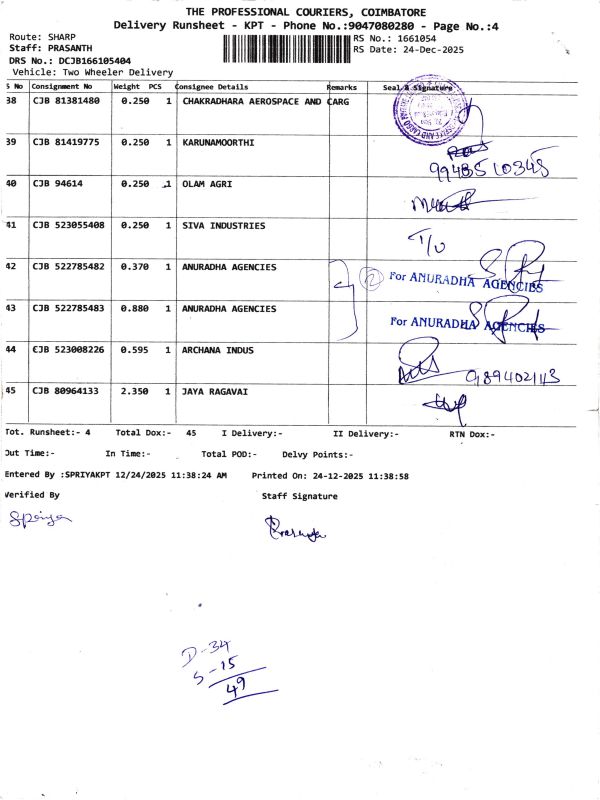 THE PROFESSIONAL COURIERS, COIMBATORE
Delivery Runsheet - KPT - Phone No.:9047080280 - Page No.:4
Route: SHARP RS No.: 1661054
Staff: PRASANTH RS Date: 24-Dec-2025
DRS No.: DCJB166105404
Vehicle: Two Wheeler Delivery
S No Consignment No Weight PCS Consignee Details Remarks Seal & Signature
38 CJB 81381480 0.250 1 CHAKRADHARA AEROSPACE AND CARG
39 CJB 81419775 0.250 1 KARUNAMOORTHI
9948510345
40 CJB 94614 0.250 1 OLAM AGRI
41 CJB 523055408 0.250 1 SIVA INDUSTRIES T/O
42 CJB 522785482 0.370 1 ANURADHA AGENCIES 2 For ANURADHA AGENCIES
43 CJB 522785483 0.880 1 ANURADHA AGENCIES For ANURADHA AGENCIES
44 CJB 523008226 0.595 1 ARCHANA INDUS
45 CJB 80964133 2.350 1 JAYA RAGAVAI
Tot. Runsheet:- 4 Total Dox:- 45 I Delivery:- II Delivery:- RTN Dox:-
Out Time:- In Time:- Total POD:- Delvy Points:-
Entered By :SPRIYAKPT 12/24/2025 11:38:24 AM Printed On: 24-12-2025 11:38:58
Verified By Staff Signature
D-34
S-15
49